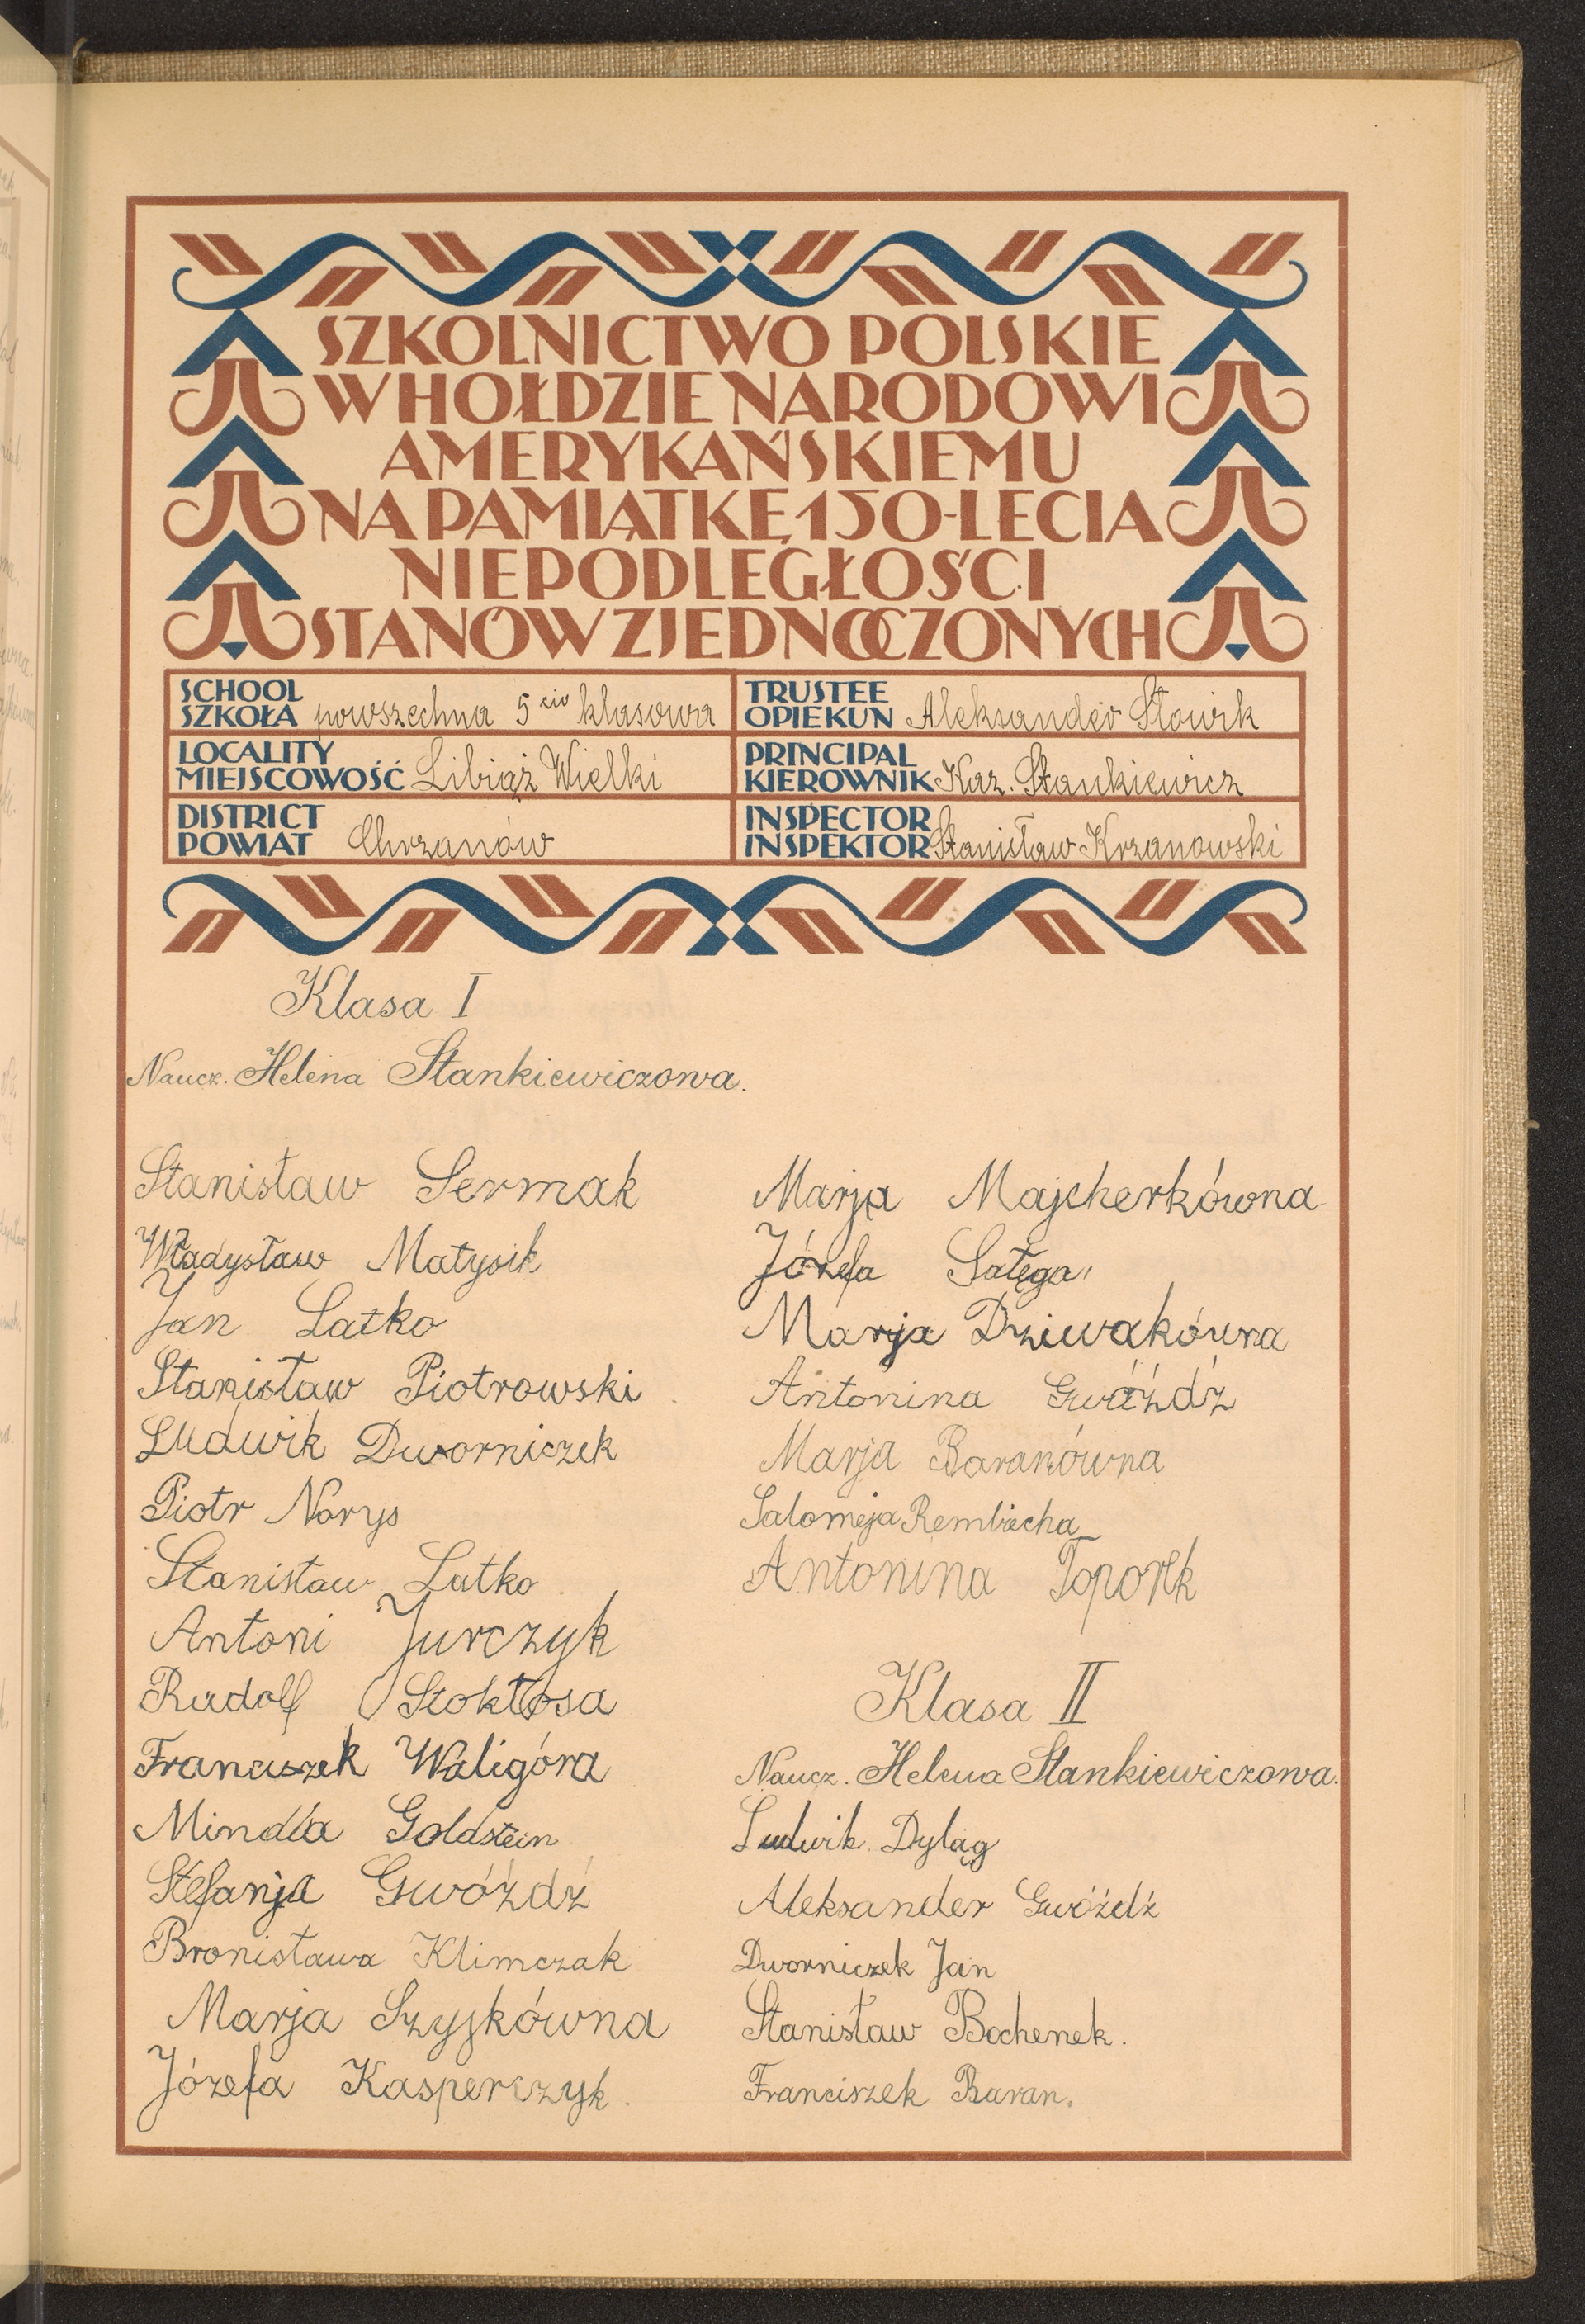 SZKOLNICTWO POLSKIE
W HOŁDZIE NARODOWI
AMERYKAŃSKIEMU
NA PAMIĄTKĘ 150-LECIA
NIEPODLEGŁOŚCI
STANÓW ZJEDNOCZONYCH
SCHOOL
SZKOŁA powszechna 5 cio klasowa
TRUSTEE
OPIEKUN Aleksander Słowik
LOCALITY
MIEJSCOWOŚĆ Libiąż Wielki
PRINCIPAL
KIEROWNIK Kaz. Stankiewicz
DISTRICT
POWIAT Chrzanów
INSPECTOR
INSPEKTOR Stanisław Krzanowski
Klasa I
Naucz. Helena Stankiewiczowa.
Stanisław Sermak
Władysław Matysik
Jan Latko
Stanisław Piotrowski
Ludwik Dworniczek
Piotr Norys
Stanisław Latko
Antoni Jurczyk
Rudolf Stokłosa
Franciszek Waligóra
Mindla Goldstein
Stefanja Gwóźdź
Bronisława Klimczak
Marja Szyjkówna
Józefa Kasperczyk.
Marja Majcherkówna
Józefa Sałęga
Marja Dziwakówna
Antonina Gwóźdź
Marja Baranówna
Salomeja Rembiecha
Antonina Toporek
Klasa II
Naucz. Helena Stankiewiczowa.
Ludwik Dyląg
Aleksander Gwóźdź
Dworniczek Jan
Stanisław Bochenek.
Franciszek Baran.